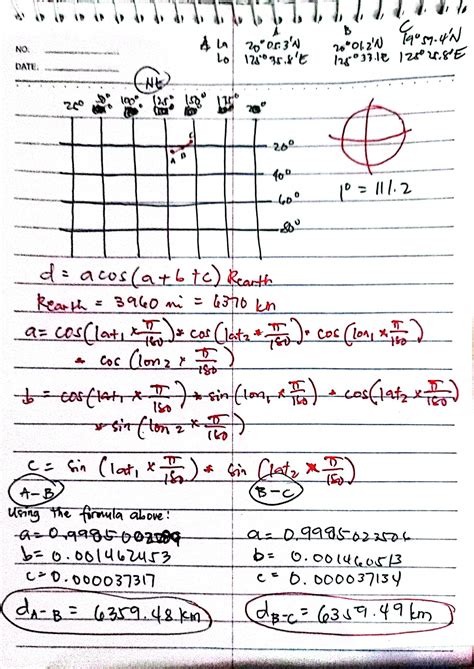 NO.
DATE.
A B C
A La 20°05.3'N 20°01.2'N 19°57.4'N
Lo 125°35.8'E 125°33.1'E 125°25.8'E
NE
100° 125° 150° 175°
20°
40°
60°
80°
A B C
1° = 111.2
d = acos(a + b + c) Rearth
Rearth = 3960 mi = 6370 km
a = cos(lat1 × π/180) * cos(lat2 * π/180) * cos(lon1 × π/180)
* cos(lon2 × π/180)
b = cos(lat1 × π/180) * sin(lon1 × π/180) * cos(lat2 × π/180)
* sin(lon2 × π/180)
c = sin(lat1 × π/180) * sin(lat2 × π/180)
A-B B-C
Using the formula above:
a = 0.9985023506
b = 0.001462453 b = 0.001460513
c = 0.000037317 c = 0.000037134
dA-B = 6359.48 km dB-C = 6359.49 km